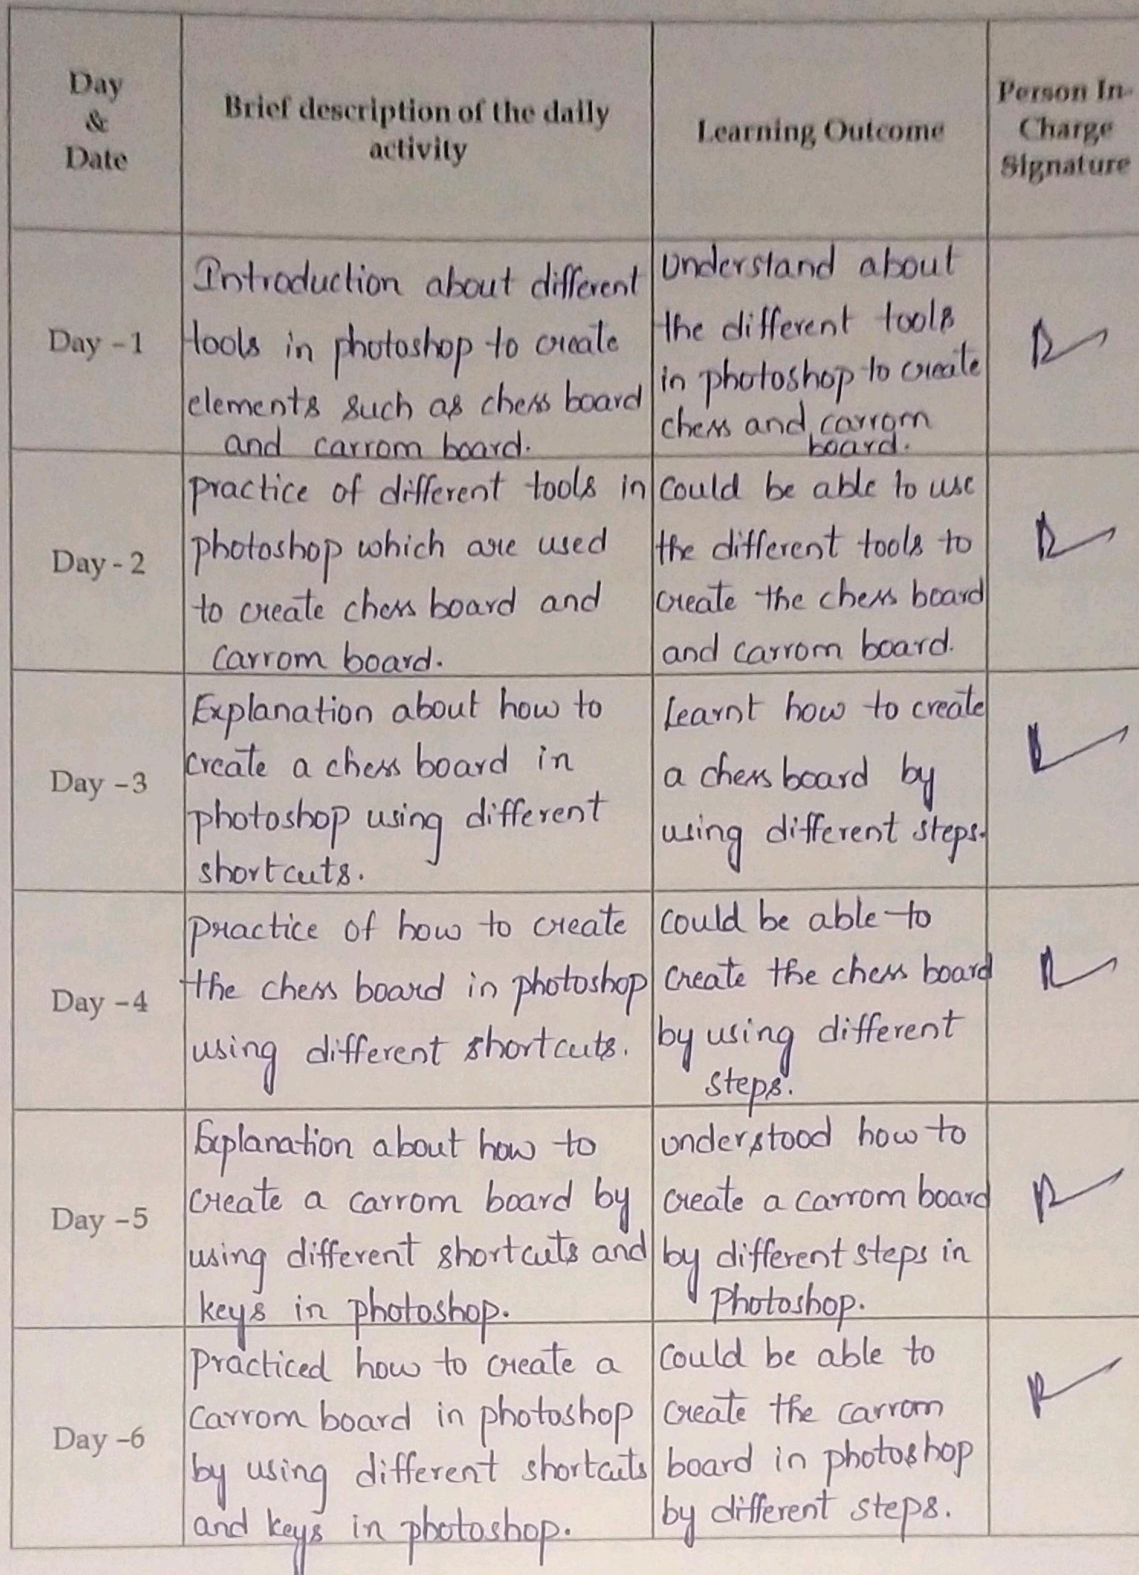 Day
&
Date
Brief description of the daily
activity
Learning Outcome
Person In-
Charge
Signature
Day -1
Introduction about different
tools in photoshop to create
elements such as chess board
and carrom board.
Understand about
the different tools
in photoshop to create
chess and carrom
board.
Day - 2
practice of different tools in
photoshop which are used
to create chess board and
carrom board.
could be able to use
the different tools to
create the chess board
and carrom board.
Day -3
Explanation about how to
create a chess board in
photoshop using different
shortcuts.
Learnt how to create
a chess board by
using different steps.
Day -4
practice of how to create
the chess board in photoshop
using different shortcuts.
could be able to
create the chess board
by using different
steps.
Day -5
Explanation about how to
create a carrom board by
using different shortcuts and
keys in photoshop.
understood how to
create a carrom board
by different steps in
Photoshop.
Day -6
practiced how to create a
carrom board in photoshop
by using different shortcuts
and keys in photoshop.
could be able to
create the carrom
board in photoshop
by different steps.